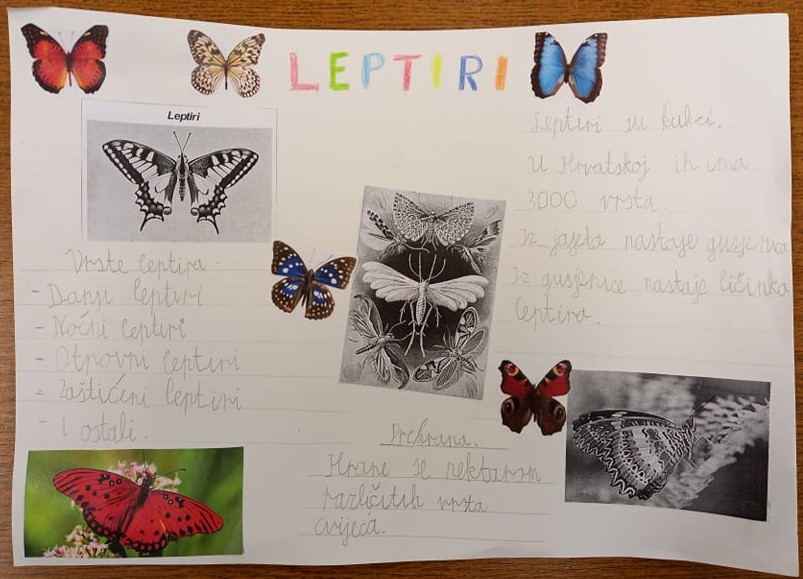 LEPTIRI
Leptiri
Vrste leptira
- Danji leptiri
- Noćni leptiri
- Otrovni leptiri
- Zaštićeni leptiri
- i ostali.
Leptiri su kukci.
U Hrvatskoj ih ima
3000 vrsta.
Iz jajeta nastaje gusjenica
Iz gusjenice nastaje ličinka
leptira.
Prehrana.
Hrane se nektarom
različitih vrsta
cvijeća.